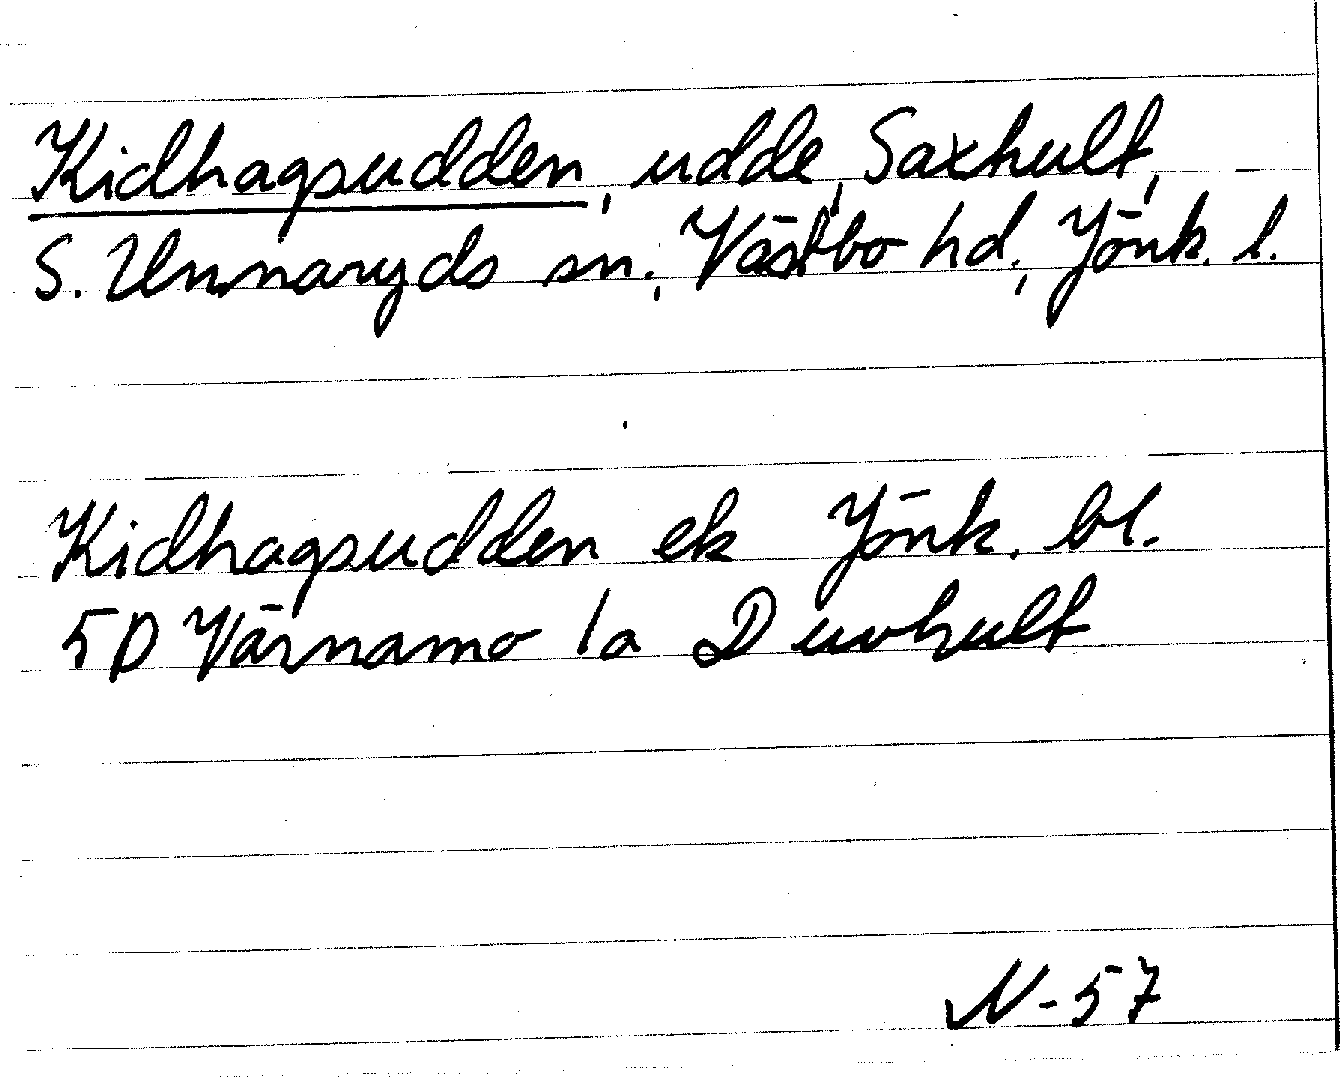 Kidhagsudden, udde, Saxhult,
S. Unnaryds sn., Västbo hd., Jönk. l.
Kidhagsudden ek Jönk. bl.
5D Värnamo 1a Duvhult
N-57